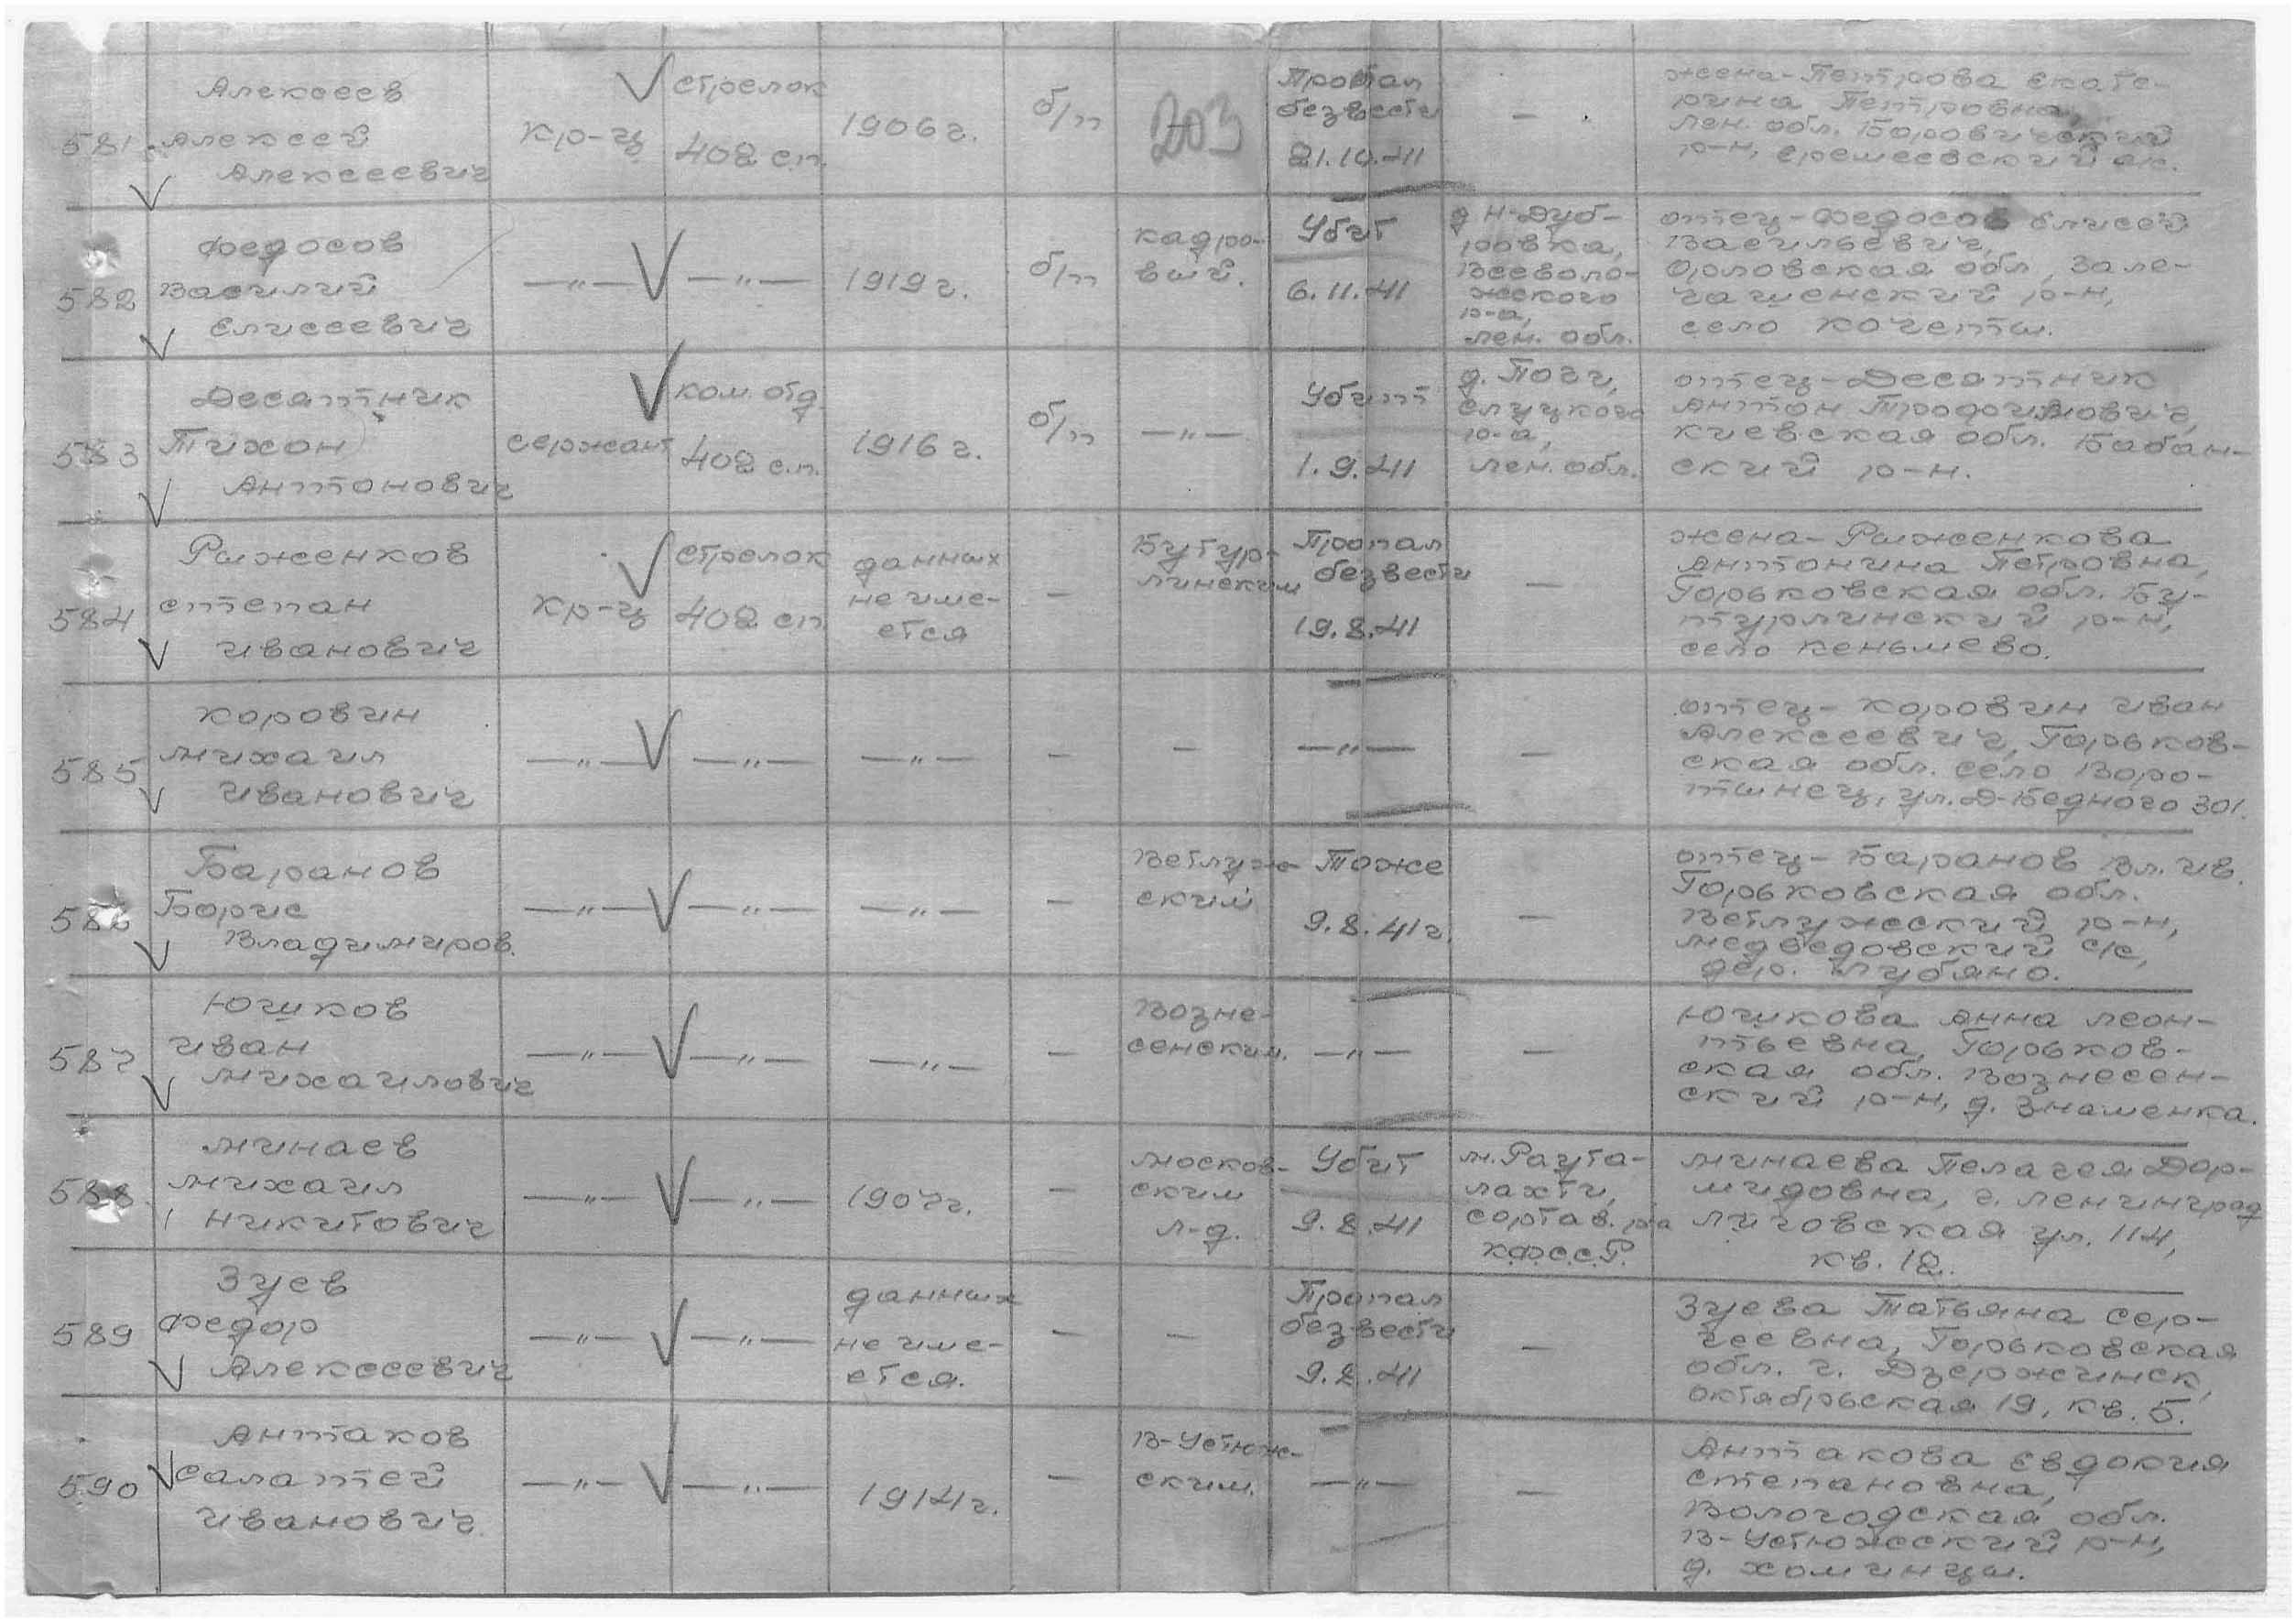 Алексеев
581. Алексей
Алексеевич
кр-ц
стрелок
402 сп.
1906 г.
б/п
203
Пропал
безвести
21.10.41
—
жена-Петрова Екате-
рина Петровна,
Лен. обл. Боровический
р-н,
Федосов
582 Василий
Елисеевич
—„—
—„—
1919 г.
б/п
кадро-
вый.
Убит
6.11.41
д Н-Дуб-
ровка,
Всеволо-
жского
р-а,
Лен. обл.
отец-Федосов Елисей
Васильевич,
Орловская обл, Зале-
гащенский р-н,
село Кочеты.
Десятник
583 Тихон
Антонович
сержант
ком. отд.
402 с.п.
1916 г.
б/п
—„—
Убит
1.9.41
д. Поги,
Слуцкого
р-а,
Лен. обл.
отец-Десятник
Антон Трофимович,
Киевская обл. Бабан-
ский р-н.
Рыженков
584 Степан
Иванович
кр-ц
стрелок
402 сп.
данных
не име-
ется
—
Бутур-
линским
Пропал
безвести
19.8.41
—
жена-Рыженкова
Антонина Петровна,
Горьковская обл. Бу-
турлинский р-н,
село Кеньшево.
Коровин
585 Михаил
Иванович
—„—
—„—
—„—
—
—
—„—
—
отец-Коровин Иван
Алексеевич, Горьков-
ская обл. село Воро-
тынец, ул. Д-Бедного 301.
Баранов
586 Борис
Владимиров.
—„—
—„—
—„—
—
Ветлуж-
ским
Тоже
9.8.41г.
—
отец-Баранов Вл. Ив.
Горьковская обл.
Ветлужский р-н,
Медведовский с/с,
дер. Лубяно.
Югиков
587 Иван
Михаилович
—„—
—„—
—„—
—
Возне-
сенским.
—„—
—
Югикова Анна Леон-
тьевна, Горьков-
ская обл. Вознесен-
ский р-н, д. Знаменка.
Минаев
588. Михаил
Никитович
—„—
—„—
1907г.
—
Москов-
ским
л-д.
Убит
9.8.41
м. Раута-
лахти,
Сортав. р-а
КФССР.
Минаева Пелагея Дор-
мидовна, г. Ленинград
Лиговская ул. 114,
кв. 12.
Зуев
589 Федор
Алексеевич
—„—
—„—
данных
не име-
ется.
—
—
Пропал
безвести
9.8.41
—
Зуева Татьяна Сер-
геевна, Горьковская
обл. г. Дзержинск,
Октябрьская 19, кв. 5.
Антаков
590 Салатей
Иванович
—„—
—„—
1914г.
—
В-Устюж-
ским.
—„—
—
Антакова Евдокия
Степановна,
Вологодская обл.
В-Устюжский р-н,
д. Хоминцы.